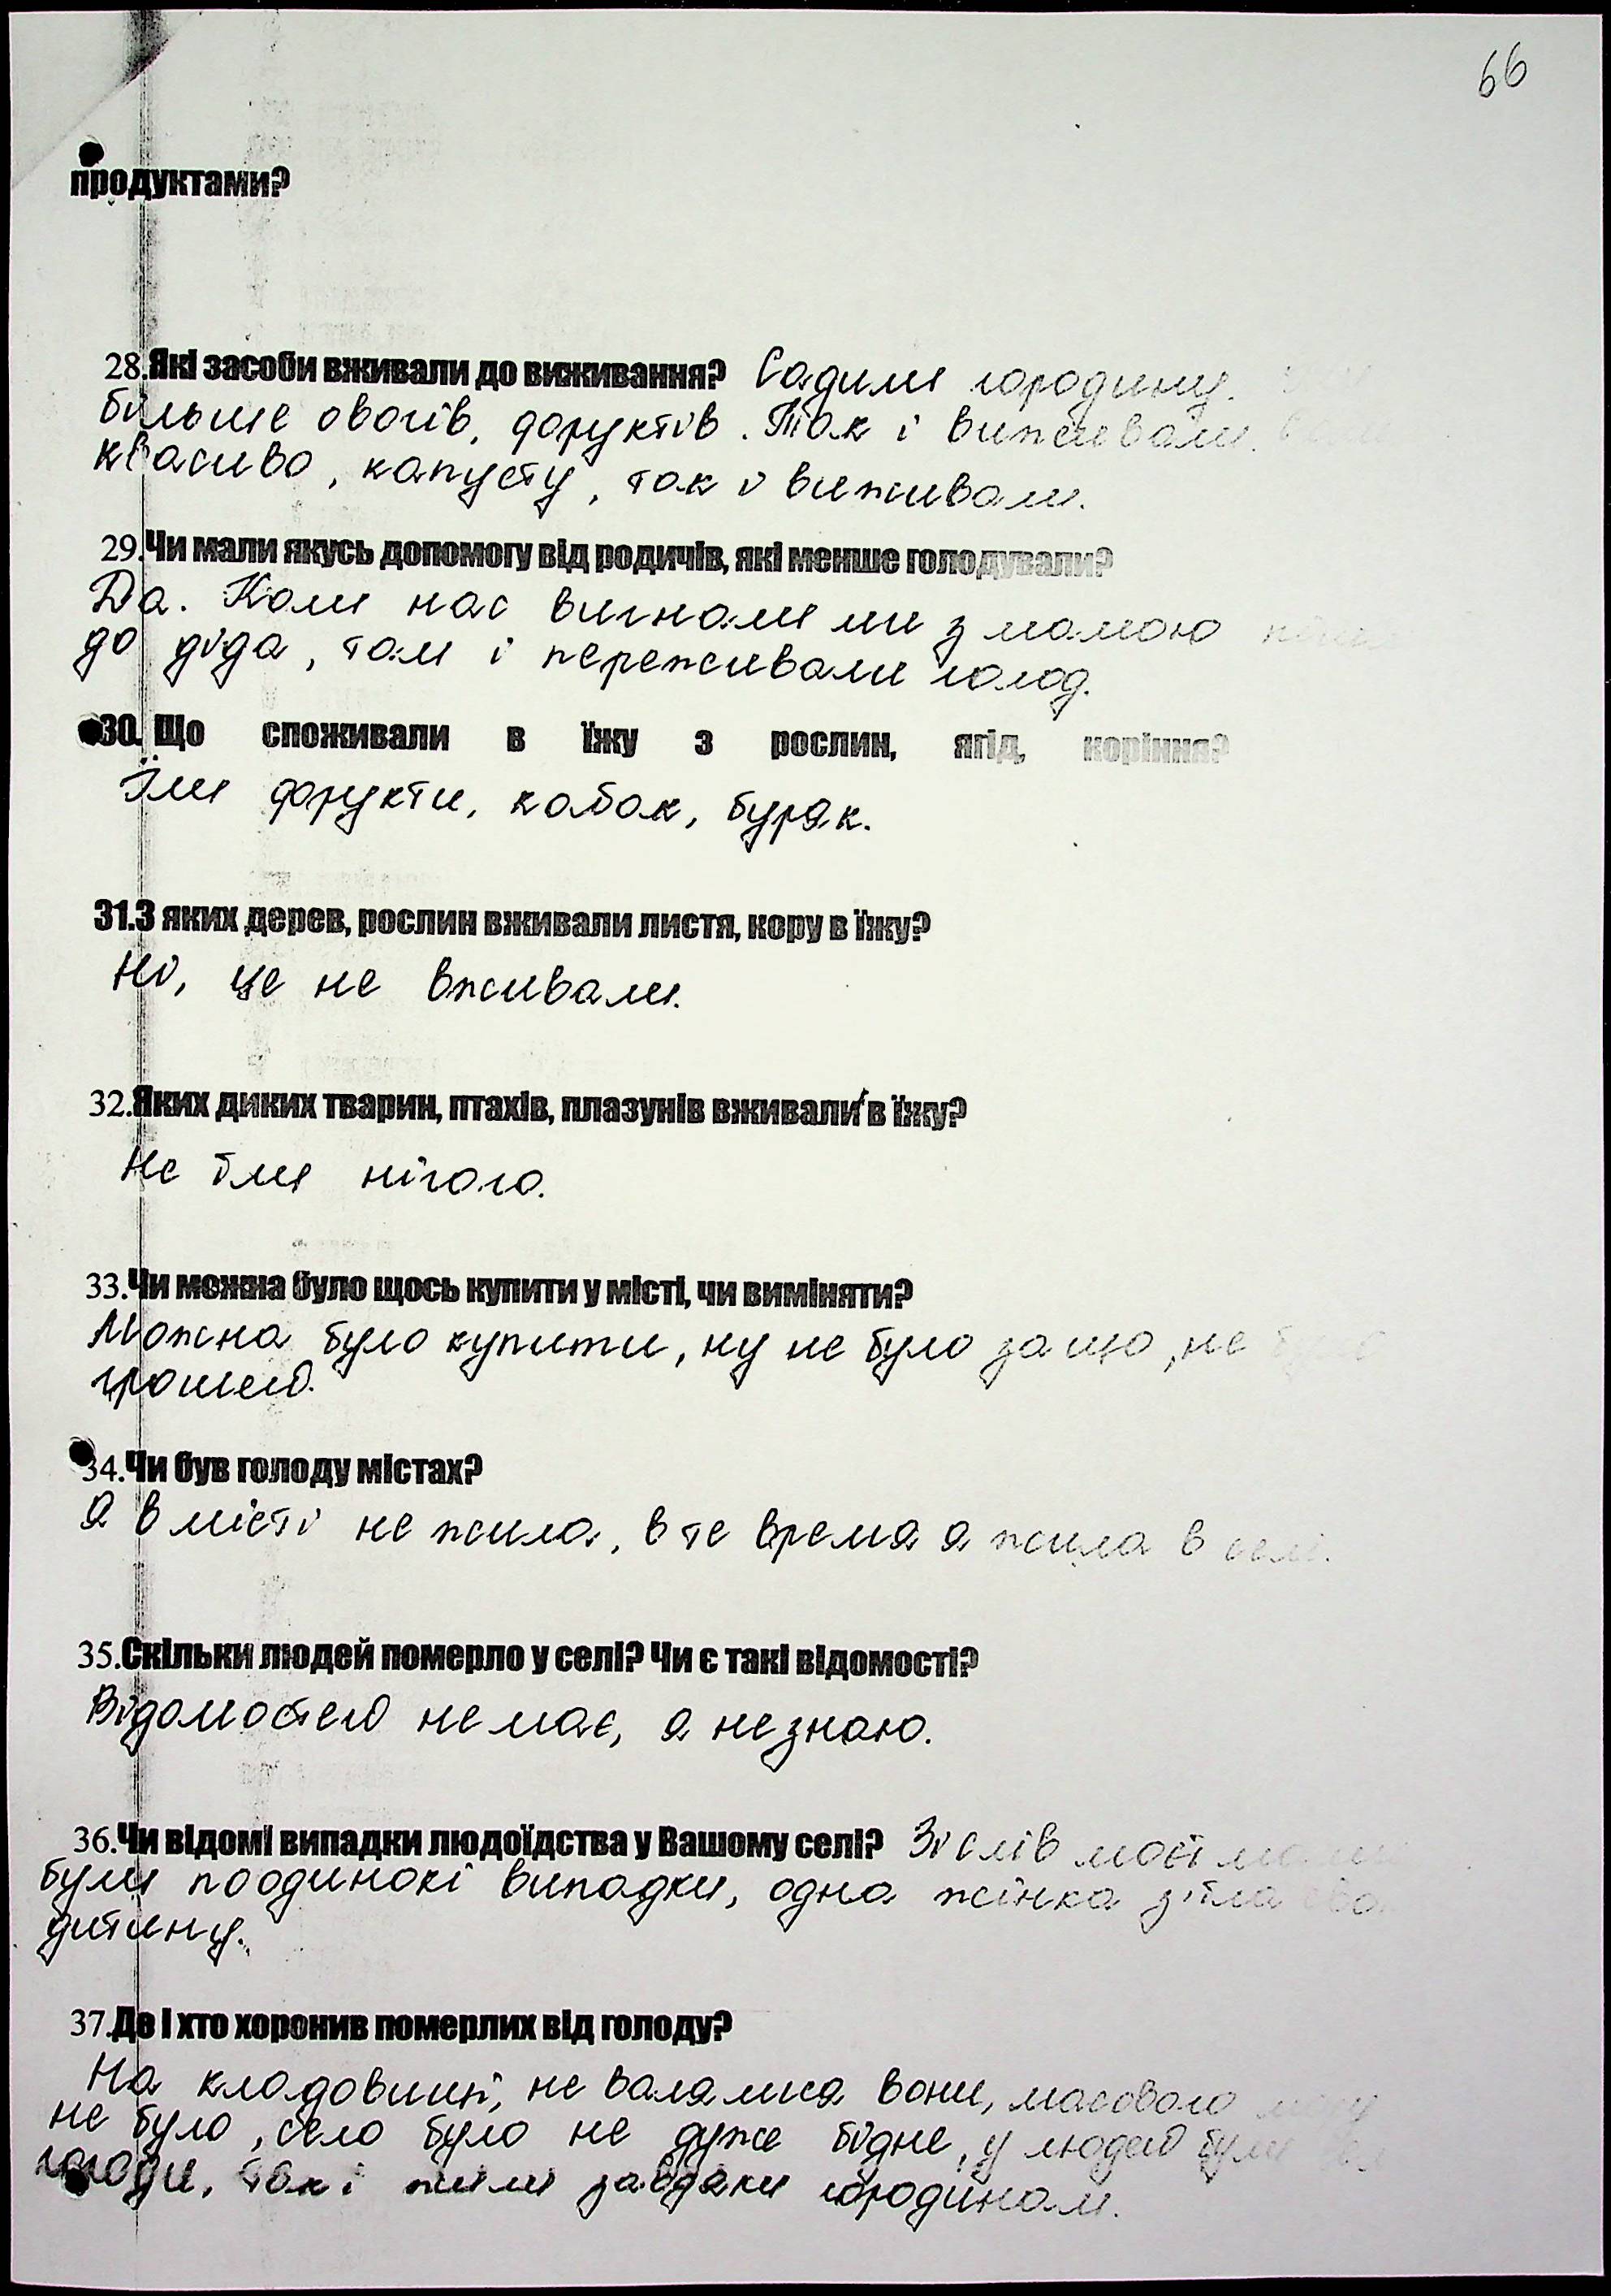 66
продуктами?
28.Які засоби вживали до виживання? Садили городину.
більше овочів, фруктів. Так і виживали.
квасиво, капусту, так і виживали.
29.Чи мали якусь допомогу від родичів, які менше голодували?
Да. Коли нас вигнали ми з мамою
до діда, там і переживали голод.
30. Що споживали в їжу з рослин, ягід, коріння?
Їли фрукти, кабак, буряк.
31.З яких дерев, рослин вживали листя, кору в їжу?
Ні, це не вживали.
32.Яких диких тварин, птахів, плазунів вживали в їжу?
Не їли нічого.
33.Чи можна було щось купити у місті, чи виміняти?
Можна було купити, ну не було за що, не
грошей.
34.Чи був голоду містах?
Я в місті не жила, в те время я жила в селі.
35.Скільки людей померло у селі? Чи є такі відомості?
Відомостей немає, я не знаю.
36.Чи відомі випадки людоїдства у Вашому селі? Зі слів моєї мами
були поодинокі випадки, одна жінка з'їла
дитину.
37.Де і хто хоронив померлих від голоду?
На кладовищі, не валялися вони, масового
не було, село було не дуже бідне, у людей були
городи, так і жили завдяки городинам.